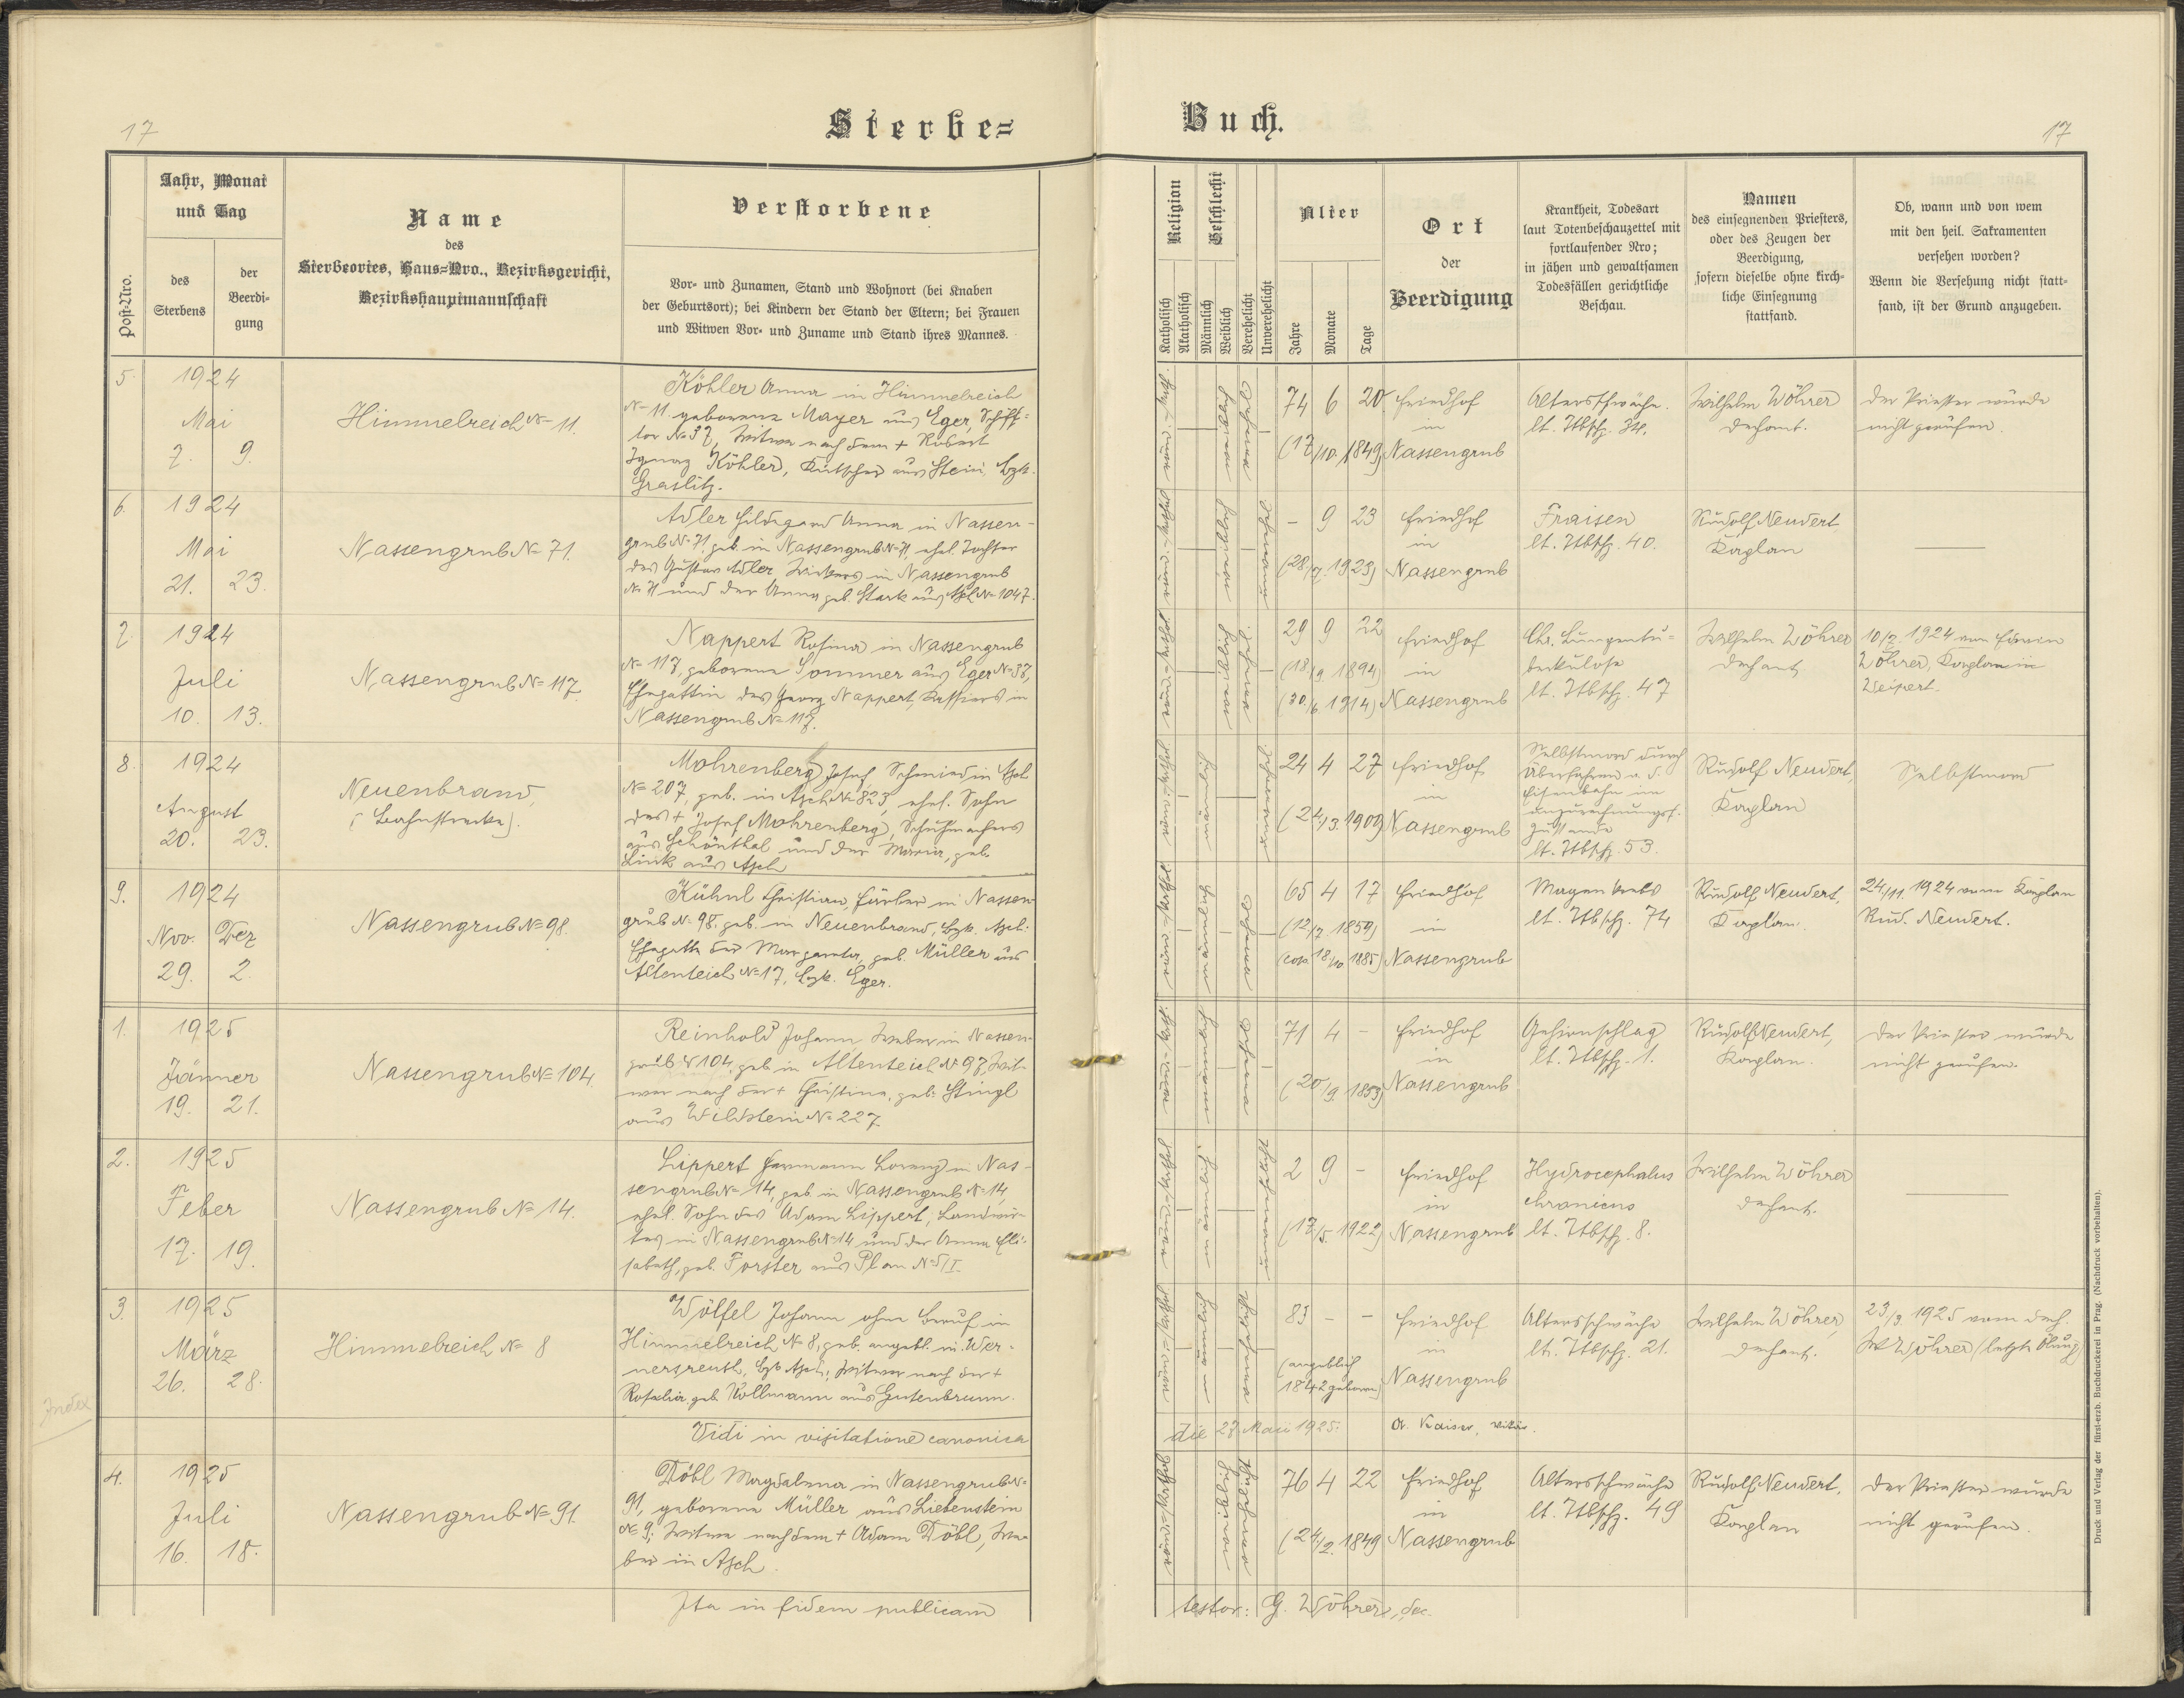 17
Sterbe=
Jahr, Monat
und Tag
Post-Nro.
des
Sterbens
der
Beerdi-
gung
Name
des
Sterbeortes, Haus=Nro., Bezirksgericht,
Bezirkshauptmannschaft
Verstorbene
Vor- und Zunamen, Stand und Wohnort (bei Knaben
der Geburtsort); bei Kindern der Stand der Eltern; bei Frauen
und Witwen Vor- und Zuname und Stand ihres Mannes.
5.
1924
Mai
7. 9.
Himmelreich N= 11.
Köhler Anna in Himmelreich
N= 11. geborene Mayer aus Eger, Schiff=
tor N= 37, Witwe nach dem + Robert
Ignaz Köhler, Kutscher aus Stein, Bzk.
Graslitz.
6.
1924
Mai
21. 23.
Nassengrub N= 71.
Adler Hildegard Anna in Nassen-
grub N= 71. geb. in Nassengrub N= 71, ehel. Tochter
des Gustav Adler, Wirkers in Nassengrub
N= 71 und der Anna geb. Stark aus Asch N= 1047.
7.
1924
Juli
10. 13.
Nassengrub N= 117.
Nappert Rosina in Nassengrub
N= 117, geborene Sommer aus Eger N= 37,
Ehegattin des Georg Nappert, Kassiers in
Nassengrub N= 117.
8.
1924
August
20. 23.
Neuenbrand,
(Bahnstrecke).
Mohrenberg Josef, Schmied in Asch
N= 207, geb. in Asch N= 823, ehel. Sohn
des + Josef Mohrenberg, Schuhmachers
aus Schönthal und der Maria, geb.
Link aus Asch
9.
1924
Nov. Dez
29. 2.
Nassengrub N= 98.
Kühnl Christian, Färber in Nassen
grub N= 98. geb. in Neuenbrand, Bzk. Asch.
Ehegatte der Margareta, geb. Müller aus
Altenteich N= 17, Bzk. Eger.
1.
1925
Jänner
19. 21.
Nassengrub N= 104
Reinhold Johann Weber in Nassen-
grub N= 104, geb. in Altenteich N= 97, Wit-
wer nach der + Christina, geb. Stingl
aus Wildstein N= 227.
2.
1925
Feber
17. 19.
Nassengrub N= 14.
Lippert Hermann Lorenz in Nas-
sengrub N= 14, geb. in Nassengrub N= 14,
ehel. Sohn des Adam Lippert, Landwir-
tes in Nassengrub N= 14 und der Anna Eli-
sabeth, geb. Forster aus Plan N= 5/I.
3.
1925
März
26. 28.
Himmelreich N= 8
Wölfel Johann ohne Beruf in
Himmelreich N= 8, geb. angebl. in Wer-
nersreuth, Bzk Asch, Witwer nach der +
Rosalia geb. Kollmann aus Gutenbrunn.
Index
Vidi in visitatione canonica
4.
1925
Juli
16. 18.
Nassengrub N= 91.
Döbl Magdalena in Nassengrub N=
91, geborene Müller aus Liebenstein
N= 9, Witwe nach dem + Adam Döbl, We-
ber in Asch.
Ita in fidem publicam
Buch.
17
Religion
Geschlecht
Katholisch
Akatholisch
Männlich
Weiblich
Verehelicht
Unverehelicht
Alter
Jahre
Monate
Tage
Ort
der
Beerdigung
Krankheit, Todesart
laut Totenbeschauzettel mit
fortlaufender Nro;
in jähen und gewaltsamen
Todesfällen gerichtliche
Beschau.
Namen
des einsegnenden Priesters,
oder des Zeugen der
Beerdigung,
sofern dieselbe ohne kirch-
liche Einsegnung
stattfand.
Ob, wann und von wem
mit den heil. Sakramenten
versehen worden?
Wenn die Versehung nicht statt-
fand, ist der Grund anzugeben.
74 6 20.
(17/10. 1849)
Friedhof
in
Nassengrub
Altersschwäche.
lt. Ttbsch. 34.
Wilhelm Wöhrer
Dechant.
Der Priester wurde
nicht gerufen.
- 9 23
(28/7. 1923)
Friedhof
in
Nassengrub
Fraisen
lt. Ttbsch. 40.
Rudolf Neudert
Kaplan
29 9 22
(18/9 1894)
(30./6 1914)
Friedhof
in
Nassengrub
Chr. Lungentu=
berkulose
lt. Ttbsch. 47
Wilhelm Wöhrer
Dechant
10/7. 1924 von Erwin
Wöhrer, Kaplan in
Weipert.
24 4 27
(24/3. 1900)
Friedhof
in
Nassengrub
Selbstmord durch
Überfahren v. d.
Eisenbahn im
unzurechnungsf.
Zustande
lt. Ttbsch. 53.
Rudolf Neudert,
Kaplan
Selbstmord
65 4 17
(12/7. 1859)
(cop. 18/10 1885)
Friedhof
in
Nassengrub
Magenkrebs
lt. Ttbsch. 74
Rudolf Neudert,
Kaplan.
24/11. 1924 vom Kaplan
Rud. Neudert.
71 4 -
(20/9. 1853)
Friedhof
in
Nassengrub
Gehirnschlag
lt. Ttbsch. 1.
Rudolf Neudert,
Kaplan.
Der Priester wurde
nicht gerufen.
2 9 -
(17/5. 1922)
Friedhof
in
Nassengrub
Hydrocephalus
chronicus
lt. Ttbsch. 8.
Wilhelm Wöhrer
Dechant.
83 - -
(angeblich
1842 geboren)
Friedhof
in
Nassengrub
Altersschwäche
lt. Ttbsch. 21.
Wilhelm Wöhrer,
Dechant.
23/3. 1925 vom Dech.
W Wöhrer (letzte Ölung)
die 27. Maii 1925. A. Kaiser, Vikär.
76 4 22
(24/2. 1849
Friedhof
in
Nassengrub
Altersschwäche
lt. Ttbsch. 49
Rudolf Neudert,
Kaplan
Der Priester wurde
nicht gerufen.
testor: G. Wöhrer, dec.
Druck und Verlag der fürst-erzb. Buchdruckerei in Prag. (Nachdruck vorbehalten).